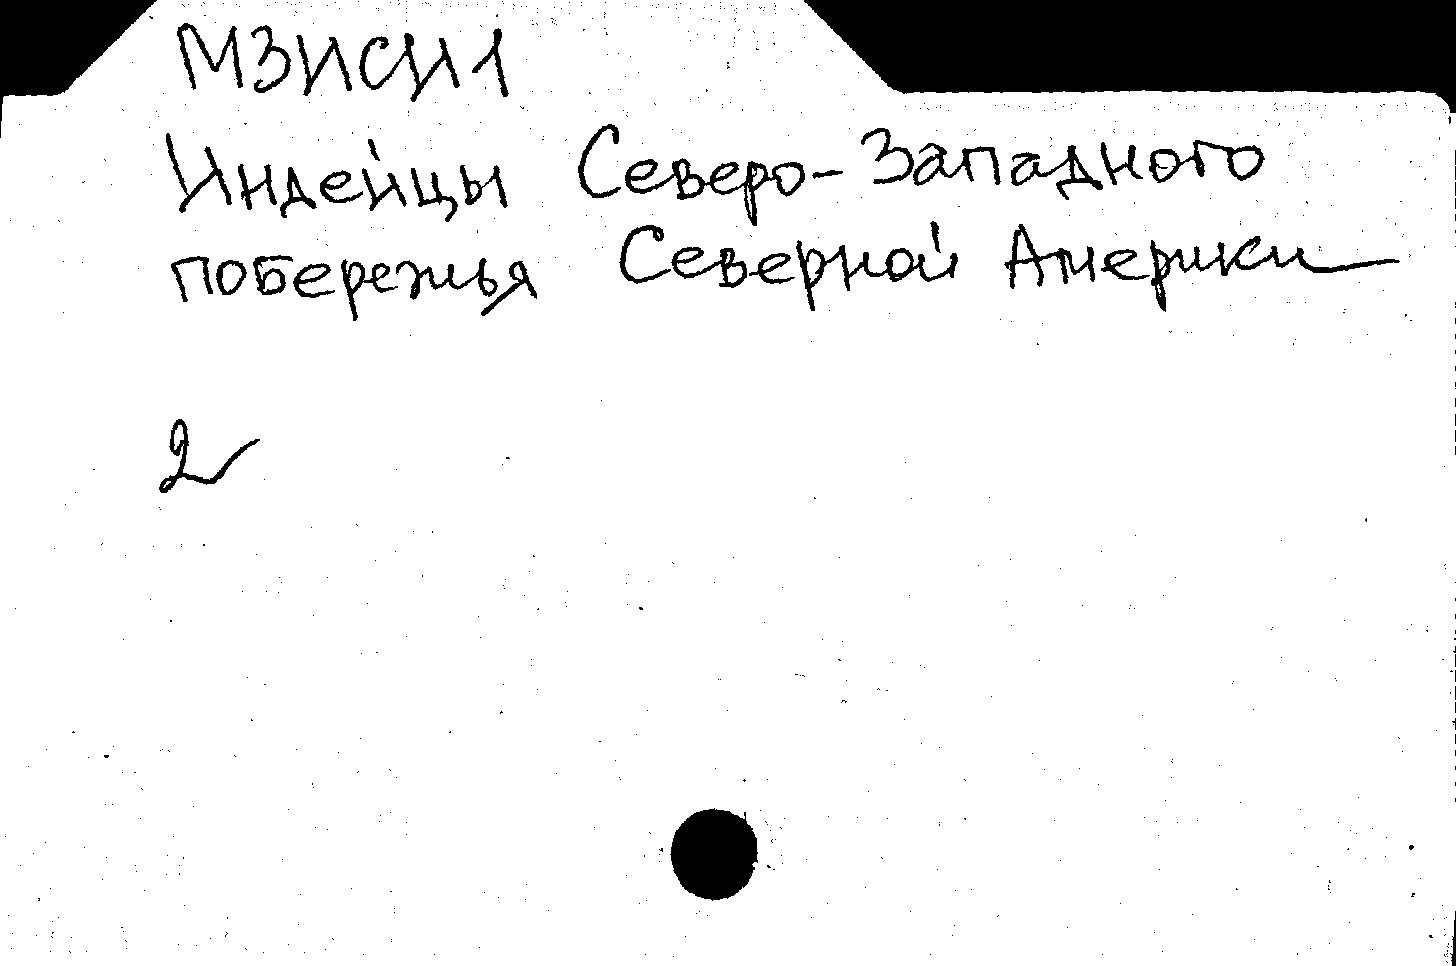 МЗИСИ1
Индейцы Северо-Западного
побережья Северной Америки
2